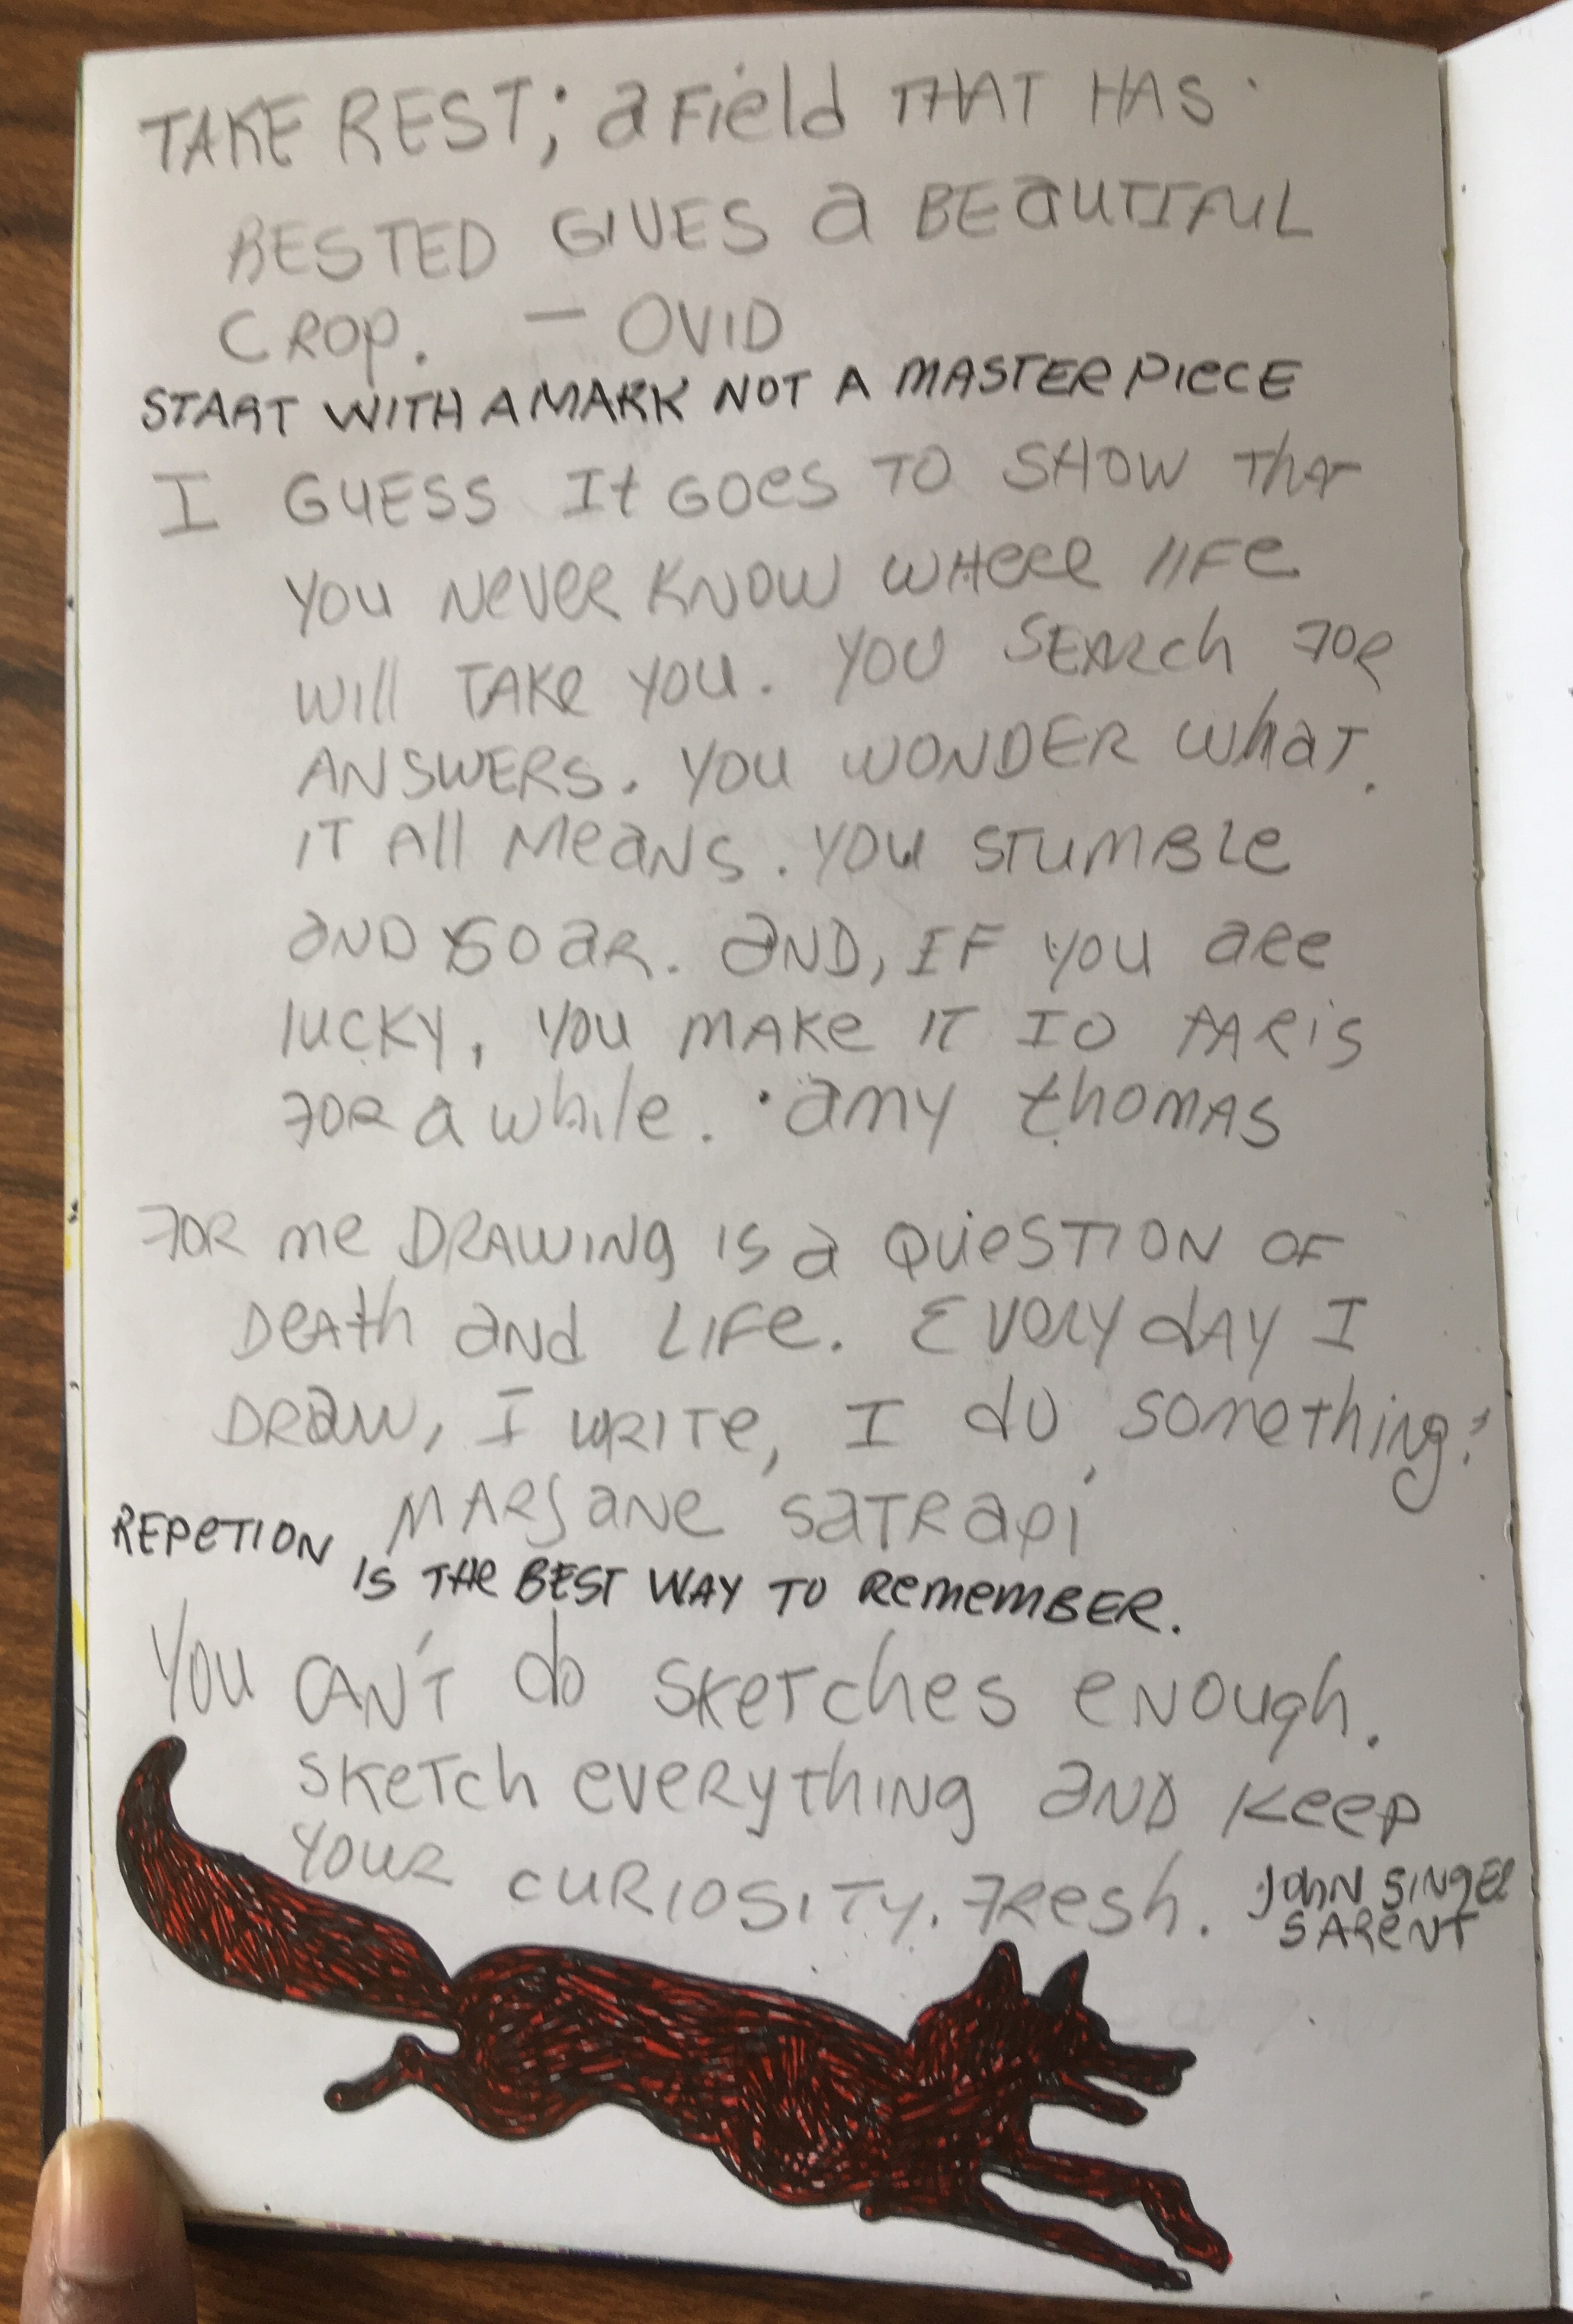 TAKE REST; a Field THAT HAS
RESTED GIVES a BEaUTIFUL
CROP. — OVID
START WITH A MARK NOT A MASTER PIECE
I GUESS It GOes TO SHOW That
YOU NeVeR KNOW WHeRe lIFe
Will TAKe YOU. YOU SEARch FOR
ANSWERS. YOU WONDER WhaT
IT All MeaNS. YOU STUMBLe
aND SOaR. aND, IF YOU aRe
lUCKY, YOU MAKe IT TO PARiS
FOR a while. amy thOMAS
FOR me DRAWING IS a QUieSTION OF
DeAth aNd LIFe. EVeRY dAY I
DRaW, I WRITe, I do SOmething.
MARJaNe SaTRapi
REPETION
IS THe BEST WAY TO ReMeMBER.
YOU CAN'T do SKeTches eNOUgh.
SKeTch eVeRYthING aND Keep
YOUR CURIOSITY. FResh. JOhN SINgER
SAReNT